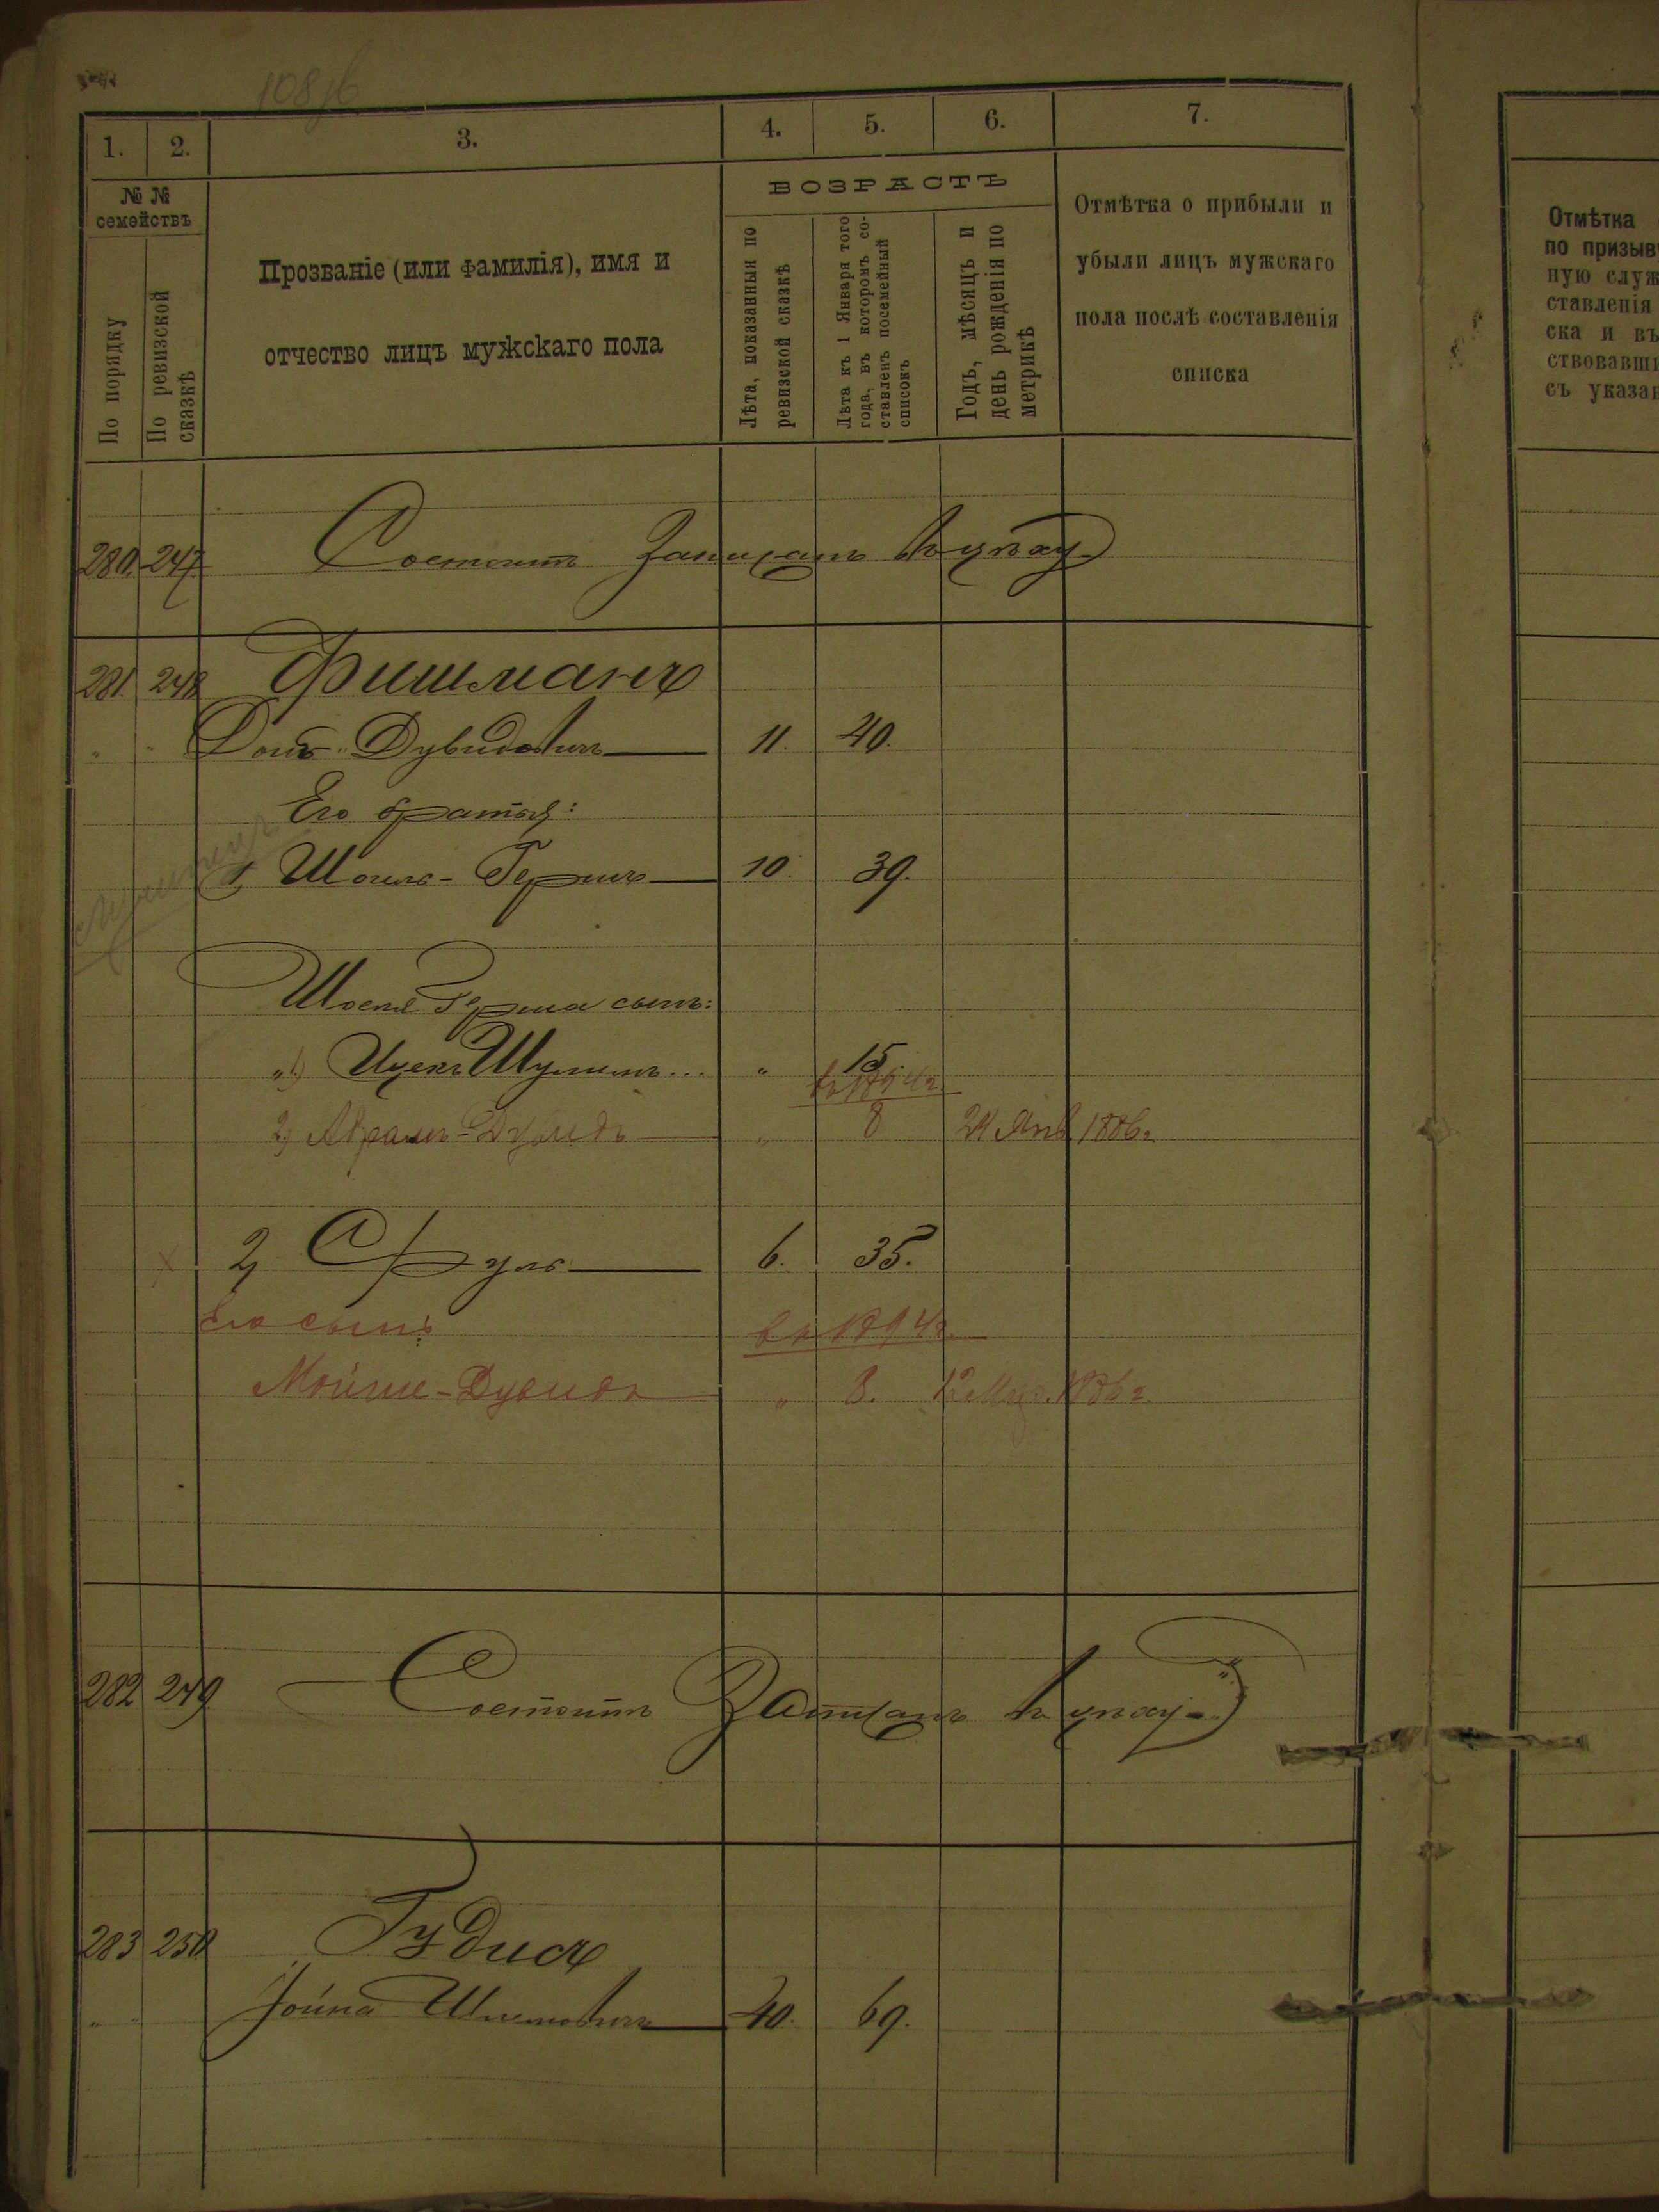 108 об
1. 2. 3. 4. 5. 6. 7.
№ № семействъ
По порядку
По ревизской сказкѣ
Прозваніе (или фамилія), имя и
отчество лицъ мужскаго пола
ВОЗРАСТЪ
Лѣта, показанныя по ревизской сказкѣ
Лѣта къ 1 Января того года, въ которомъ составленъ посемейный списокъ
Годъ, мѣсяцъ и день рожденія по метрикѣ
Отмѣтка о прибыли и
убыли лицъ мужскаго
пола послѣ составленія
списка
Отмѣтка
по призыв
ную служ
ставленія
ска и въ
ствовавши
съ указан
280. 247. Состоитъ Записанъ въ цеху
281 248 Фишманъ
" " Дувидовичъ 11. 40.
Его братья:
1, Шоель-Гершъ 10. 39.
Шоеля Герша сынъ:
"1) Ицекъ Шулимъ... " 15.
въ 1894 г.
2) Абрамъ-Дувидъ " 8 24 Янв. 1886 г.
× 2, Сруль 6. 35.
Его сынъ:
въ 1894 г.
Мойше-Дувидъ " 8. 1886 г.
282 249. Состоитъ Записанъ въ цеху
283 250. Гудисъ
" " Іойна 40. 69.